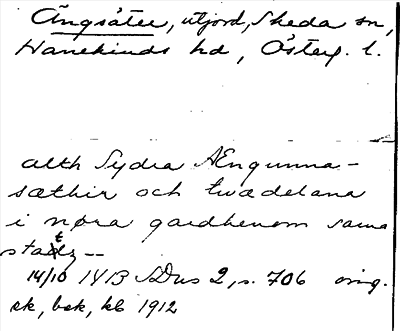 Ängsätter, utjord, Skeda sn,
Hanekinds hd, Österg. l.
alth Sydra Ængunna-
sæthir och twædelana
i nøra gardhenom sama
stadz --
14/10 1413 SDns 2, s. 706 orig.
sk, bek, kb 1912